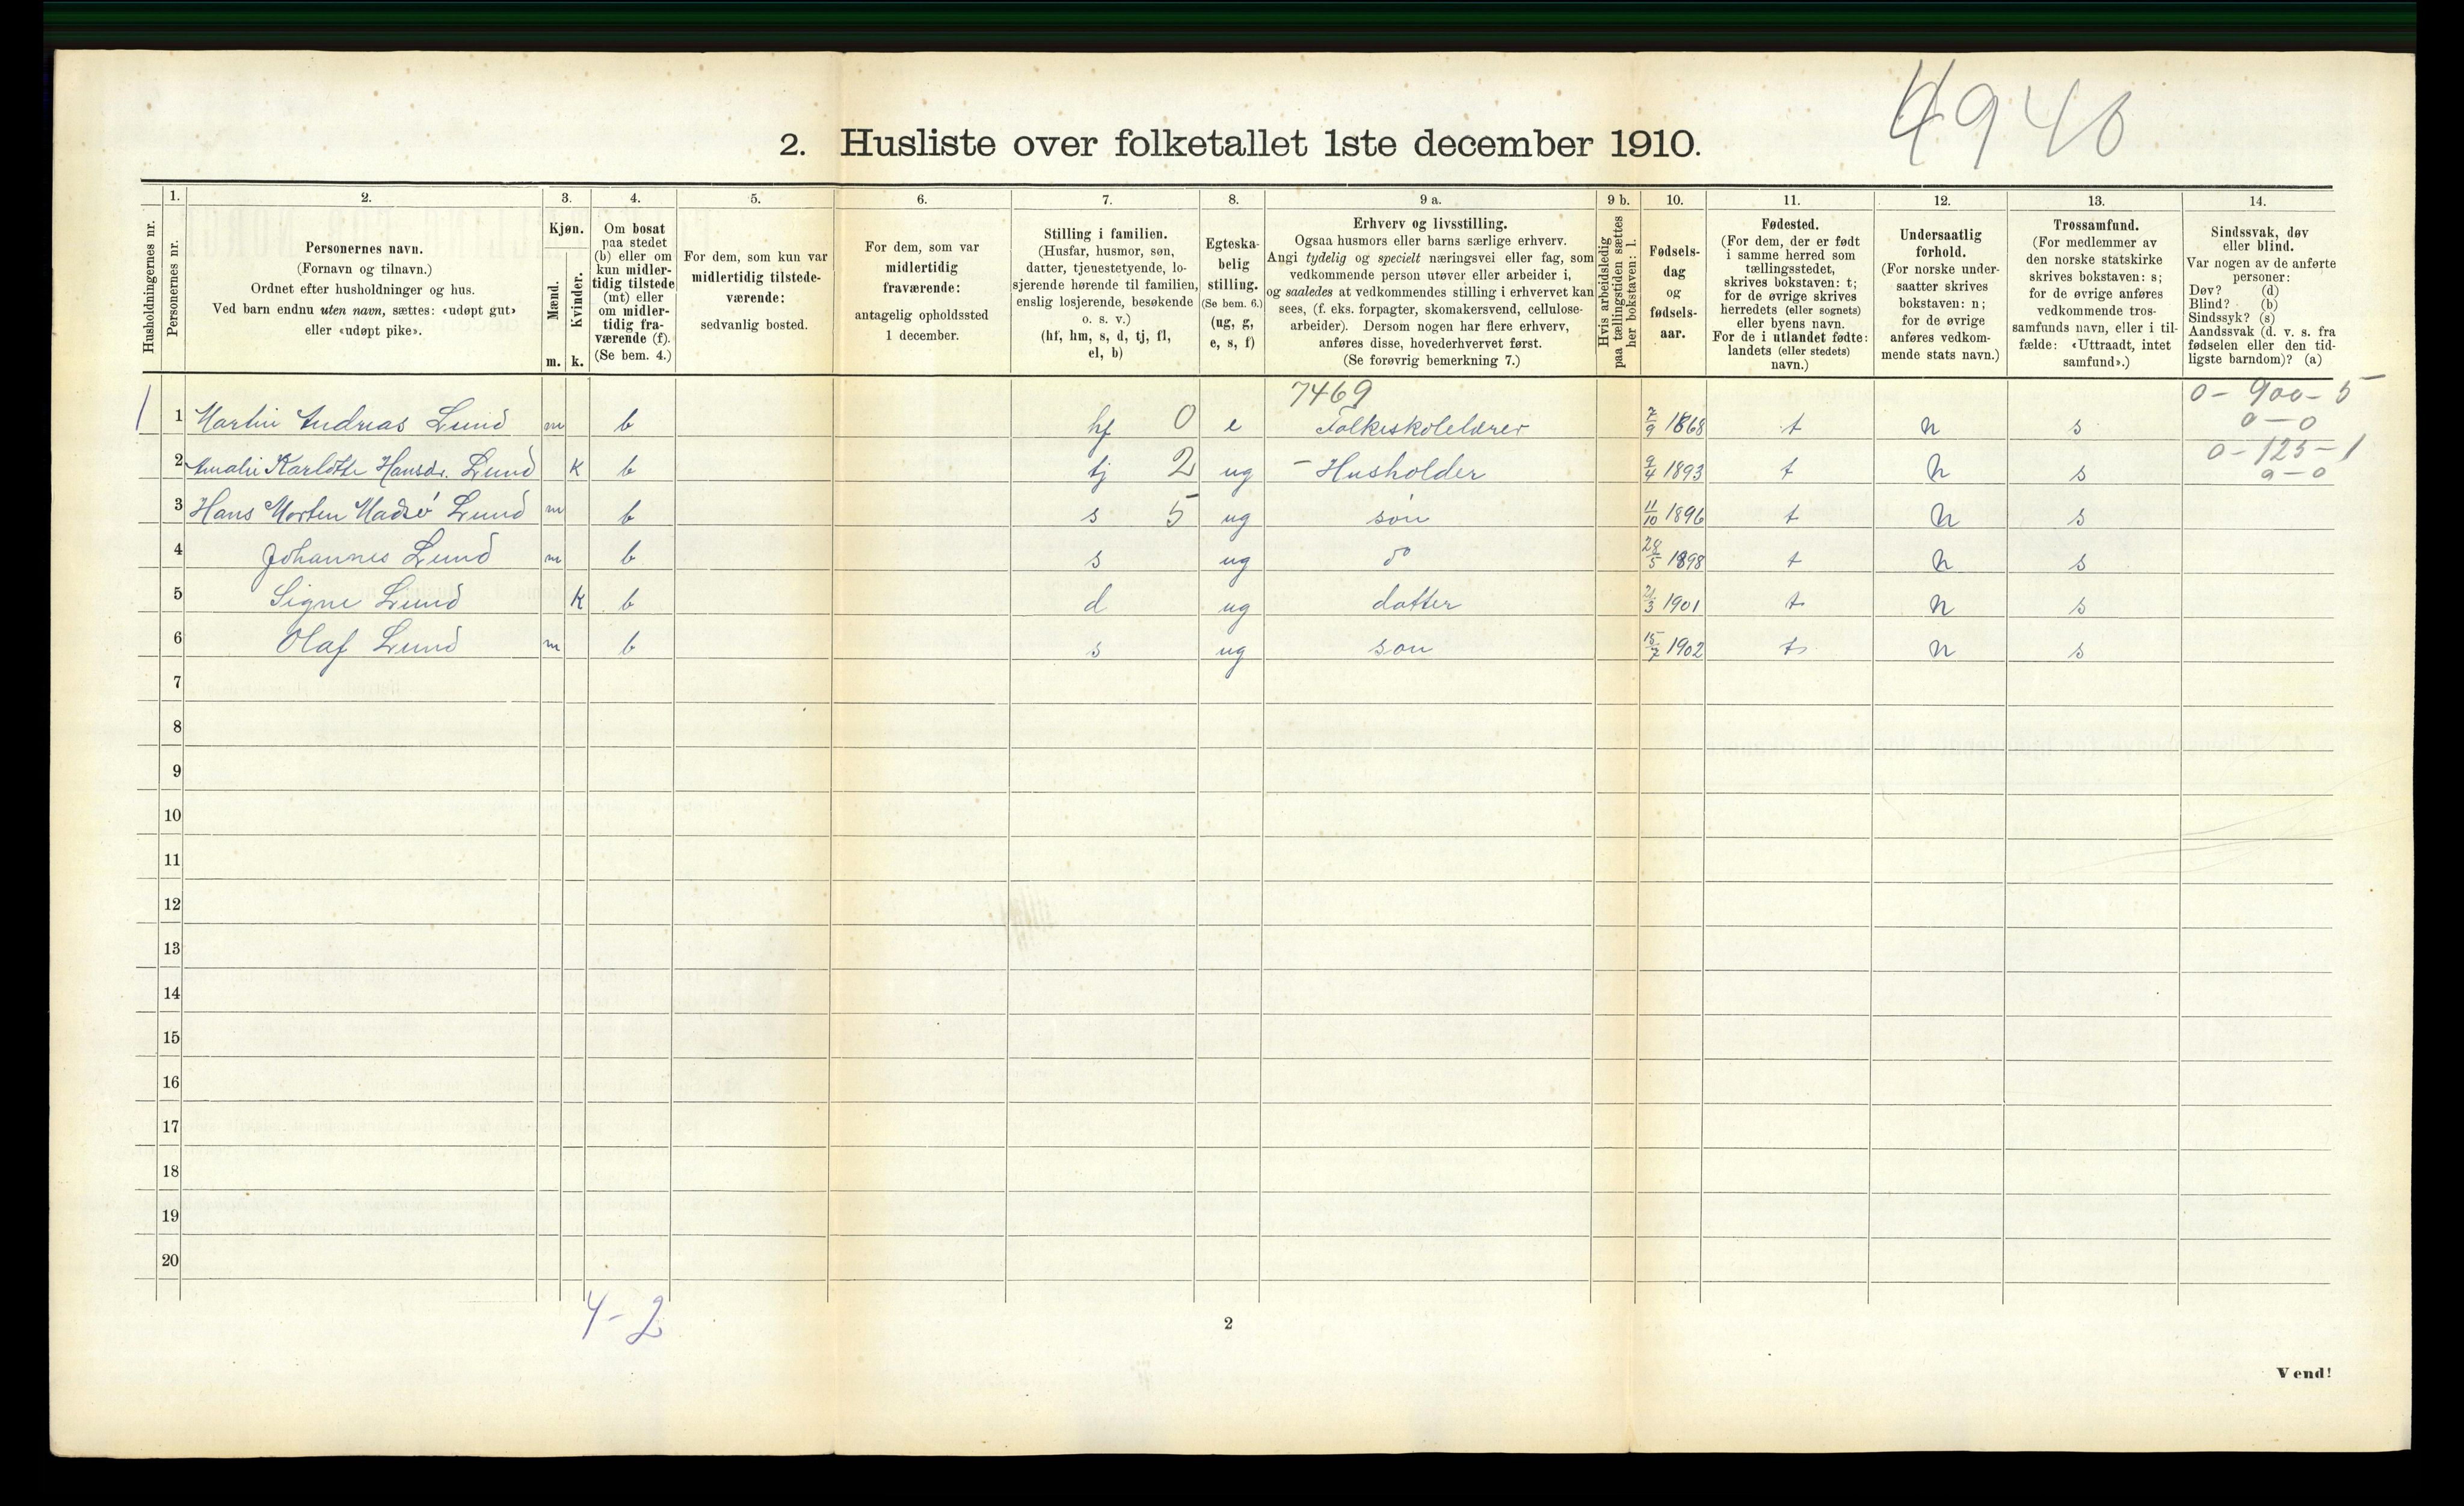 4940
2. Husliste over folketallet 1ste december 1910.
1. 2. 3. 4. 5. 6. 7. 8. 9 a. 9 b. 10. 11. 12. 13. 14.
Husholdningernes nr.
Personernes nr.
Personernes navn.
(Fornavn og tilnavn.)
Ordnet efter husholdninger og hus.
Ved barn endnu uten navn, sættes: «udøpt gut»
eller «udøpt pike».
Kjøn.
Mænd.
Kvinder.
m. k.
Om bosat
paa stedet
(b) eller om
kun midler-
tidig tilstede
(mt) eller
om midler-
tidig fra-
værende (f).
(Se bem. 4.)
For dem, som kun var
midlertidig tilstede-
værende:
sedvanlig bosted.
For dem, som var
midlertidig
fraværende:
antagelig opholdssted
1 december.
Stilling i familien.
(Husfar, husmor, søn,
datter, tjenestetyende, lo-
sjerende hørende til familien,
enslig losjerende, besøkende
o. s. v.)
(hf, hm, s, d, tj, fl,
el, b)
Egteska-
belig
stilling.
(Se bem. 6.)
(ug, g,
e, s, f)
Erhverv og livsstilling.
Ogsaa husmors eller barns særlige erhverv.
Angi tydelig og specielt næringsvei eller fag, som
vedkommende person utøver eller arbeider i,
og saaledes at vedkommendes stilling i erhvervet kan
sees, (f. eks. forpagter, skomakersvend, cellulose-
arbeider). Dersom nogen har flere erhverv,
anføres disse, hovederhvervet først.
(Se forøvrig bemerkning 7.)
Hvis arbeidsledig
paa tællingstiden sættes
her bokstaven: l.
Fødsels-
dag
og
fødsels-
aar.
Fødested.
(For dem, der er født
i samme herred som
tællingsstedet,
skrives bokstaven: t;
for de øvrige skrives
herredets (eller sognets)
eller byens navn.
For de i utlandet fødte:
landets (eller stedets)
navn.)
Undersaatlig
forhold.
(For norske under-
saatter skrives
bokstaven: n;
for de øvrige
anføres vedkom-
mende stats navn.)
Trossamfund.
(For medlemmer av
den norske statskirke
skrives bokstaven: s;
for de øvrige anføres
vedkommende tros-
samfunds navn, eller i til-
fælde: «Uttraadt, intet
samfund».)
Sindssvak, døv
eller blind.
Var nogen av de anførte
personer:
Døv? (d)
Blind? (b)
Sindssyk? (s)
Aandssvak (d. v. s. fra
fødselen eller den tid-
ligste barndom)? (a)
7469 0-900-5
1 1 Martin Andreas Lund m b hf 0 e Folkeskolelærer 7/9 1868 t n s 0-0
0-125-1
2 Amalie Karlotte Hansdr. Lund k b tj 2 ug - Husholder 9/4 1893 t n s 0-0
3 Hans Morten Lund m b s 5 ug søn 11/10 1896 t n s
4 Johannes Lund m b s ug do 28/5 1898 t n s
5 Signe Lund k b d ug datter 21/3 1901 t n s
6 Olaf Lund m b s ug søn 15/7 1902 t n s
7
8
9
10
11
12
13
14
15
16
17
18
19
20
4-2
2
Vend!